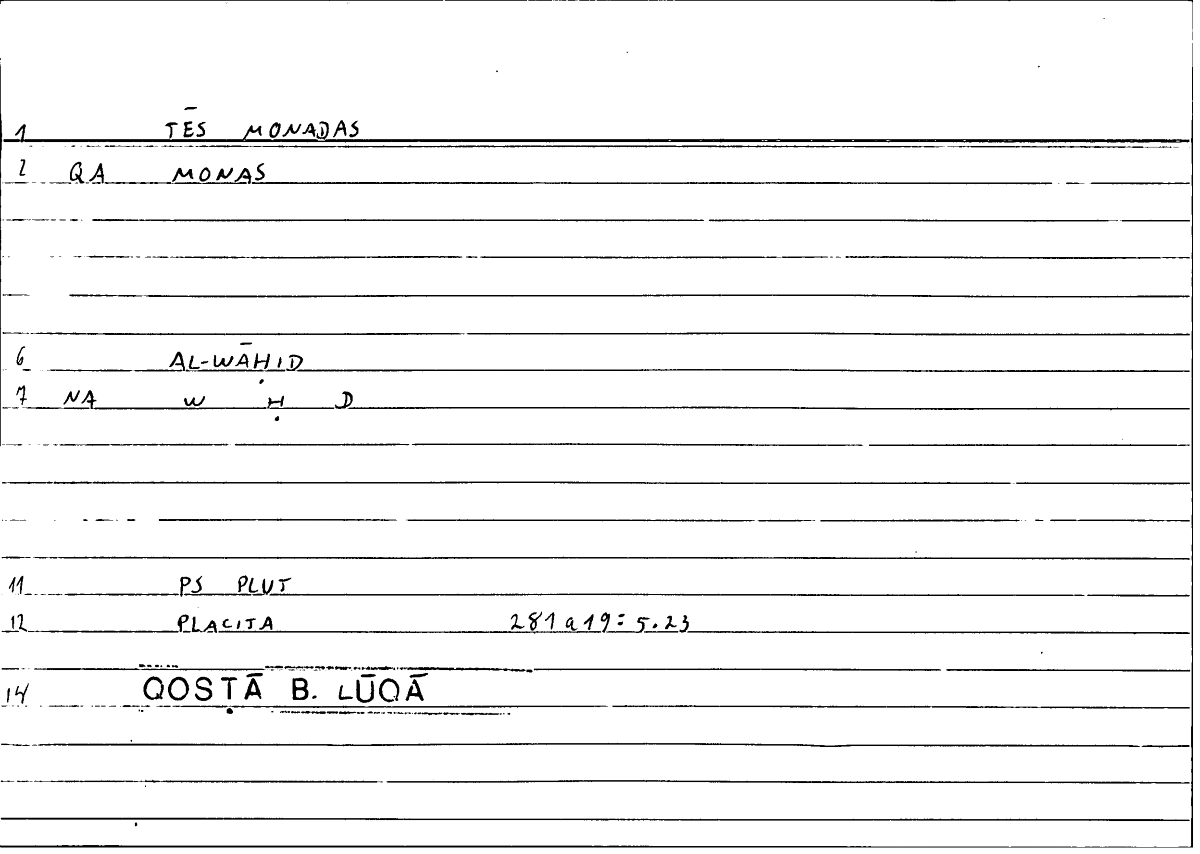 1 TĒS MONADAS
2 QA MONAS
6 AL-WĀḤID
7 NA W Ḥ D
11 PS PLUT
12 PLACITA 281a19: 5.23
14 QOSṬĀ B. LŪQĀ